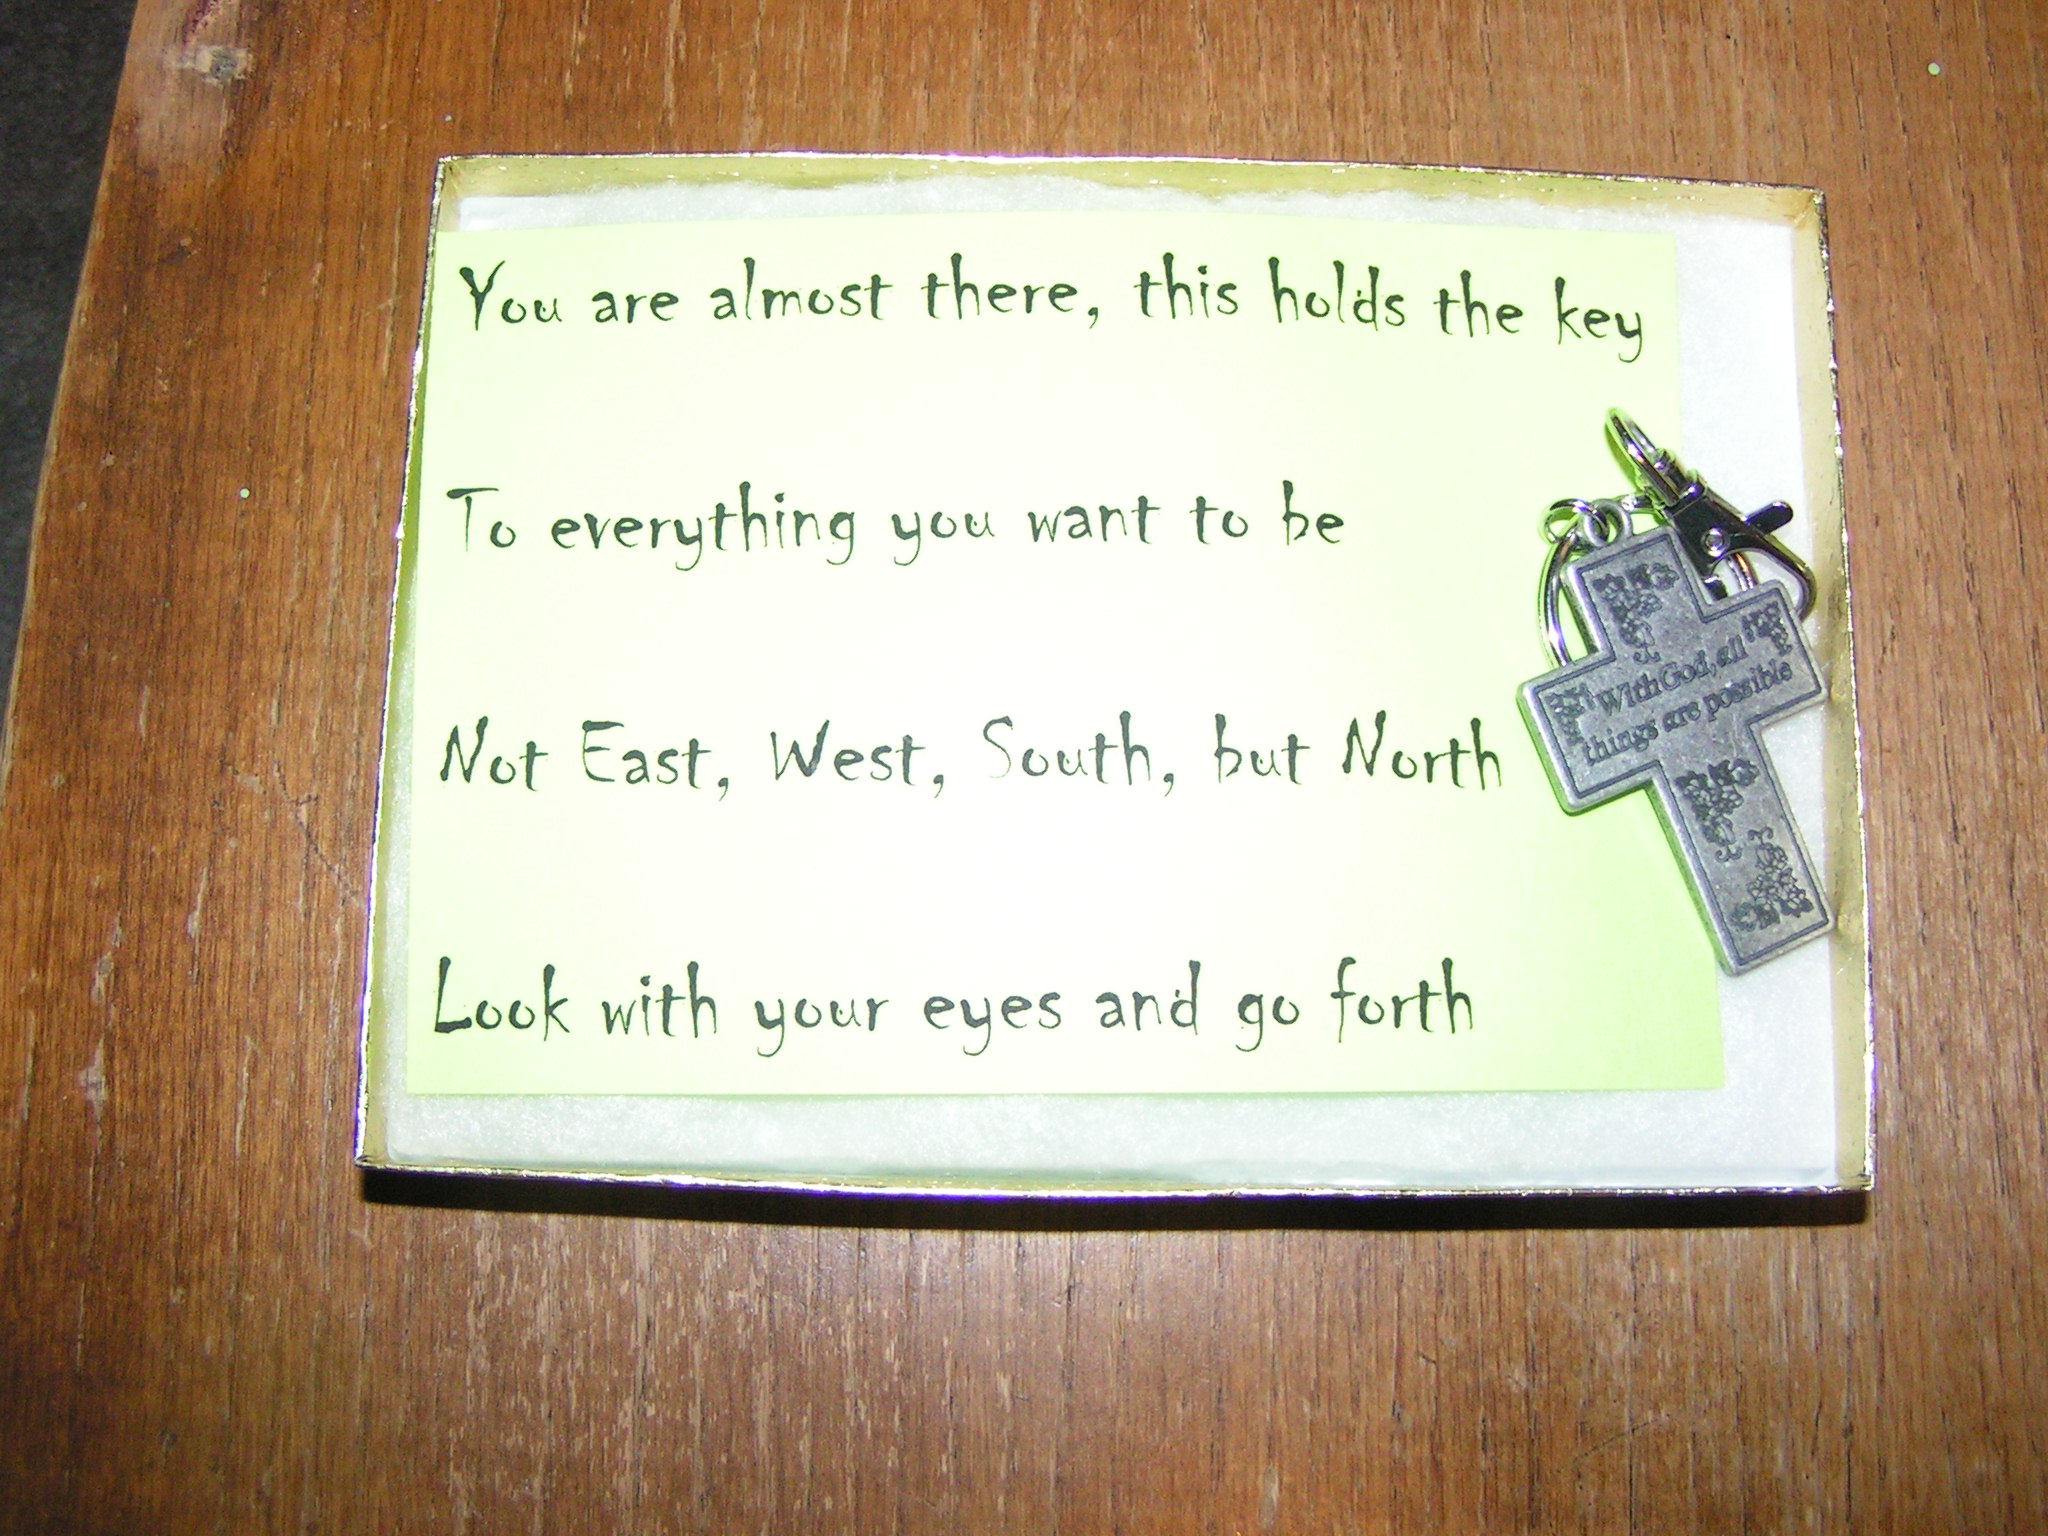 You are almost there, this holds the key
To everything you want to be
Not East, West, South, but North
Look with your eyes and go forth
With God, all
things are possible